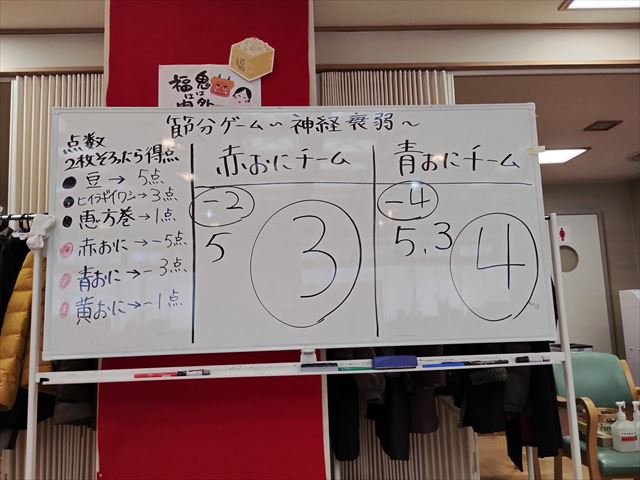 鬼は外
福は内
節分ゲーム~神経衰弱~
点数
2枚そろったら得点
豆→5点
ヒイラギイワシ→3点
恵方巻→1点
赤おに→-5点
青おに→-3点
黄おに→-1点
赤おにチーム
-2
5
3
青おにチーム
-4
5,3
4